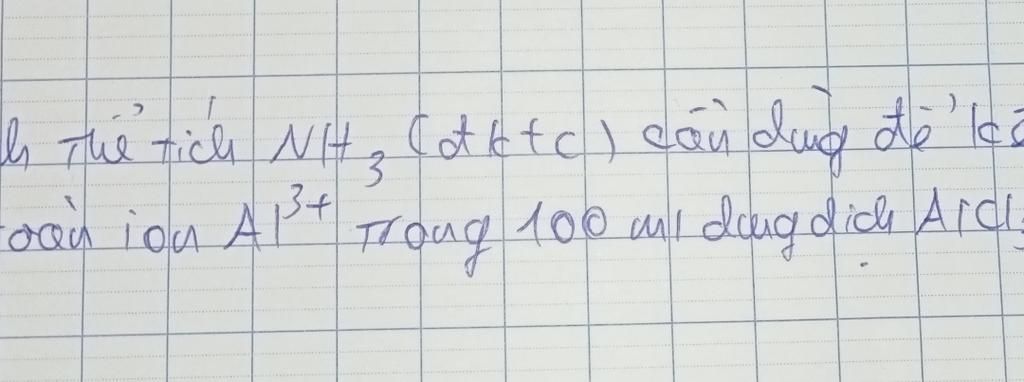 h Thể tích NH3 (đktc) cần dùng để kế
oàn ion Al3+ Trong 100 ml dung dịch AlCl3